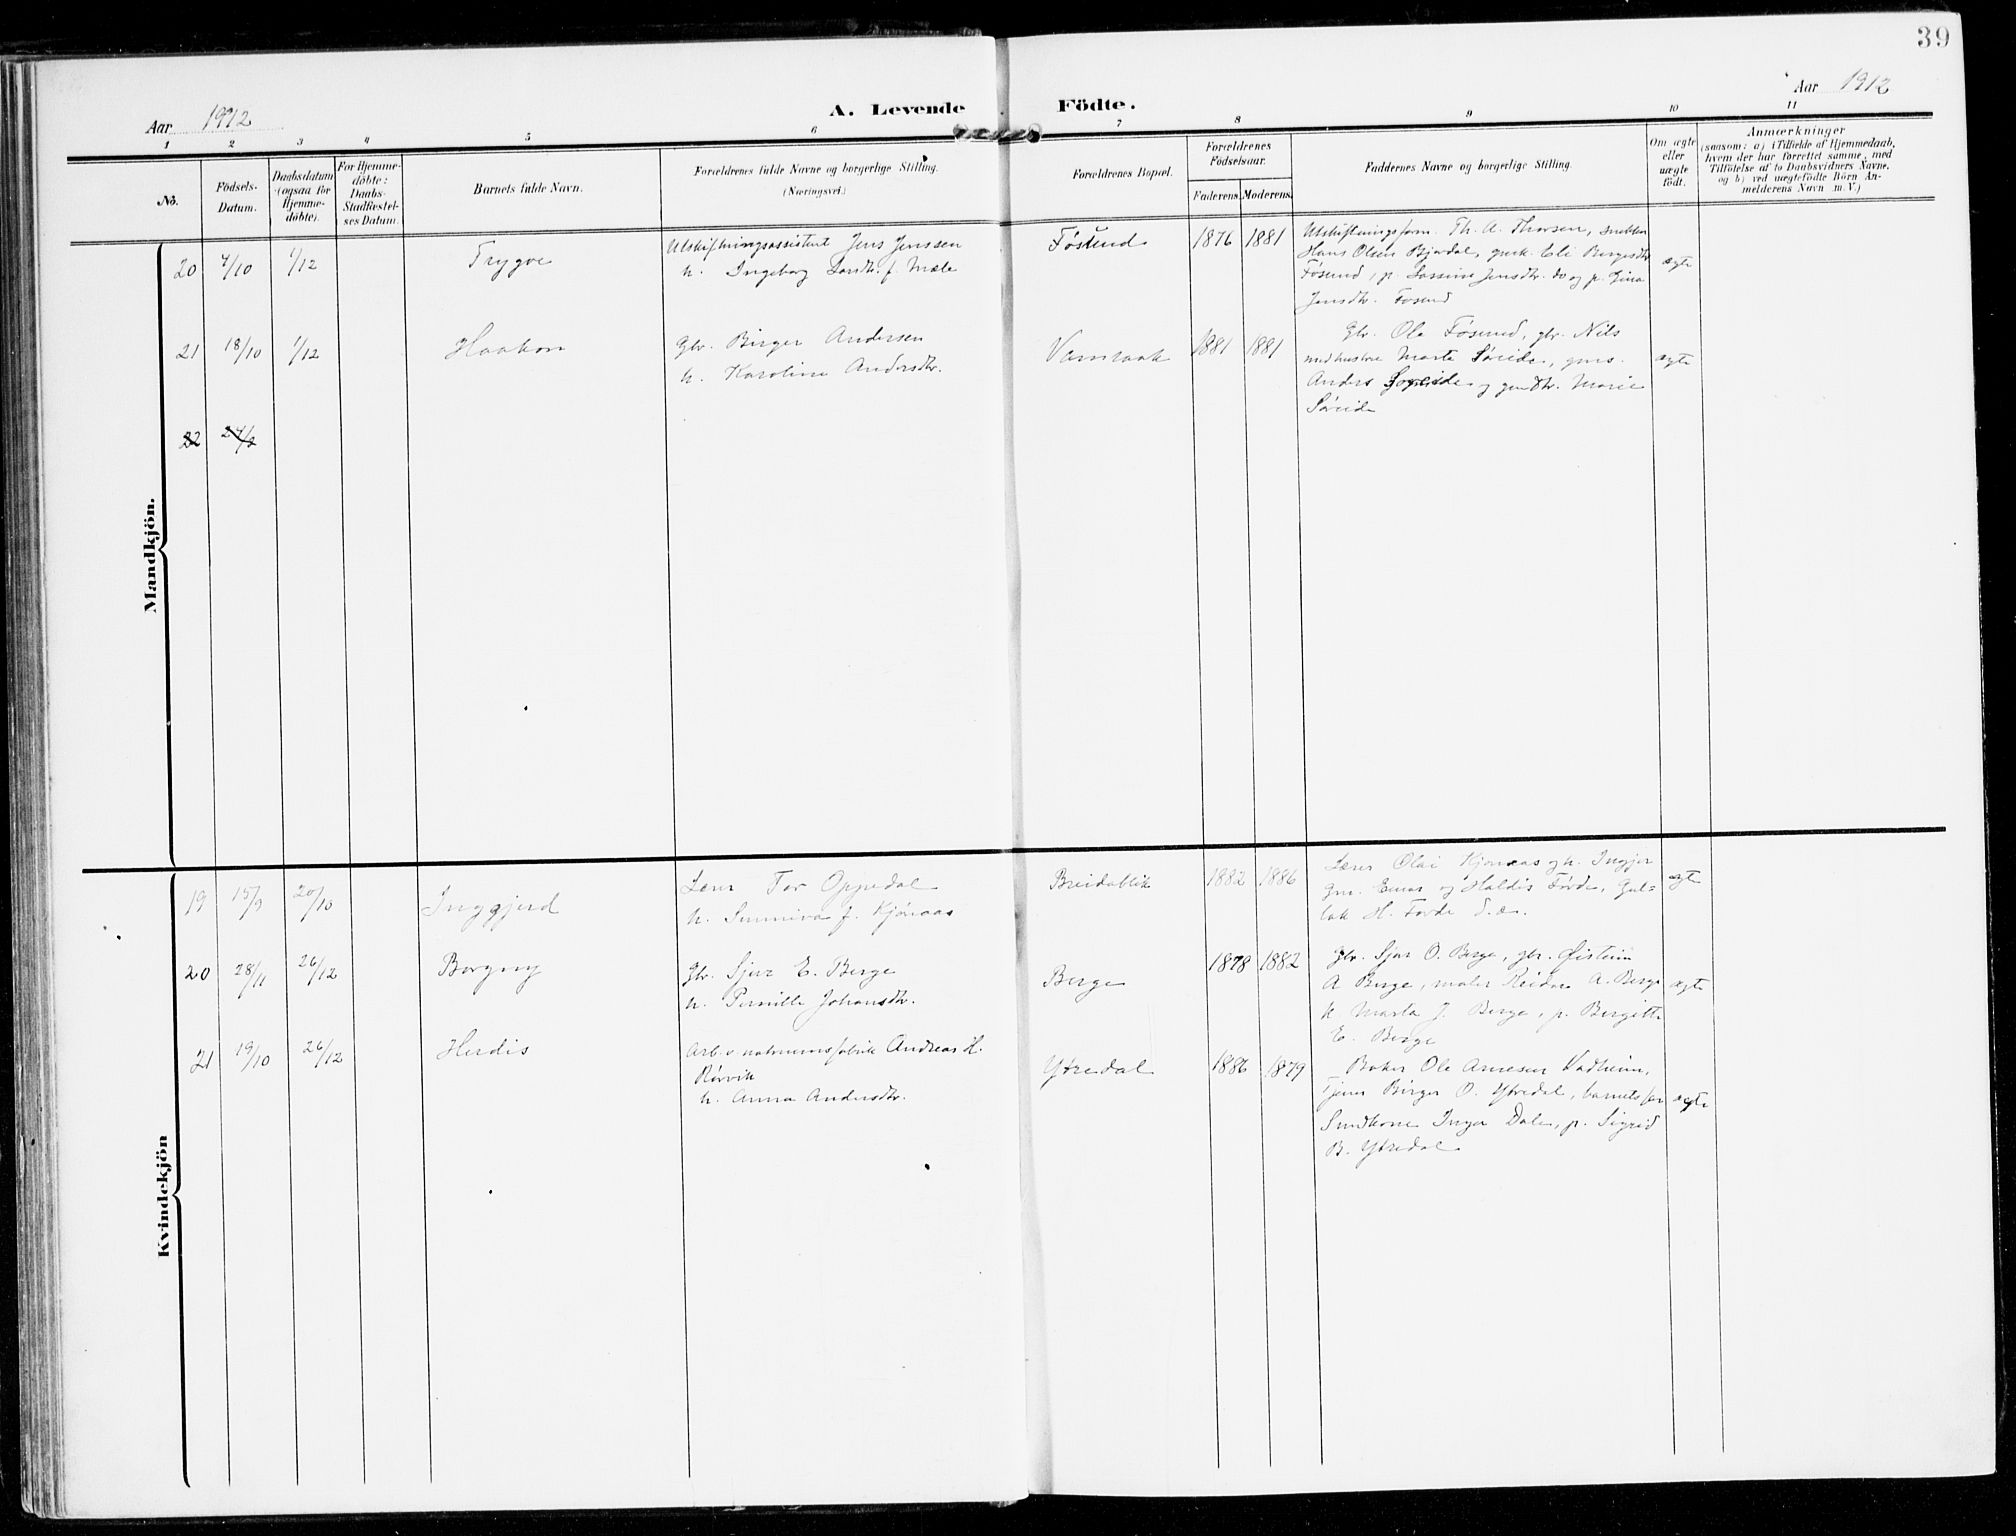 39
Aar 1912
A. Levende Födte.
Aar 1912
1 2 3 4 5 6 7 8 9 10 11
No.
Födsels-
Datum.
Daabsdatum
(ogsaa for
Hjemme-
döbte).
For Hjemme-
döbte:
Daabs-
Stadfæstel-
ses Datum.
Barnets fulde Navn.
Forældrenes fulde Navne og borgerlige Stilling.
(Næringsvei.)
Forældrenes Bopæl.
Forældrenes
Födselsaar.
Faderens. Moderens.
Faddernes Navne og borgerlige Stilling.
Om ægte
eller
uægte
födt.
Anmærkninger
(saasom: a) i Tilfælde af Hjemmedaab,
hvem der har forrettet samme, med
Tilföielse af to Daabsvidners Navne,
og b) ved uægtefödte Börn An-
melderens Navn m. V.)
Mandkjön.
20 7/10 1/12 Trygve
Utskiftningsassistent Jens Jenssen
h. Ingeborg Larsdtr. f. Mæle
Føsund 1876 1881
Utskiftningsform. Th. A. Thorsen, snekker
Hans Olsen Bjordal, gmk. Eli Birgesdtr.
Føsund, p. Lassine Jensdtr. do og p. Gina
Jensdtr. Føsund
ægte
21 18/10 1/12 Haakon
Gbr. Birger Andersen
h. Karoline Andersdtr.
Vamraak 1881 1881
Gbr. Ole Føsund, gbr. Nils
med hustru Marta Søreide, gms.
Anders Søreide og gmdtr. Marie
Søreide
ægte
22 24/9
Kvindekjön
19 15/9 20/10 Inggjerd
Lærer Tor Oppedal
h. Sunniva f. Kjønaas
Breidablik 1882 1886
Lærer Olai Kjønaas og h. Ingjer
gm. Einar og Haldis Førde, Gul-
lak H. Førde s. d.
ægte
20 28/11 26/12 Borgny
Gbr. Sjur E. Berge
h. Pernille Johansdtr.
Berge 1878 1882
Gbr. Sjur O. Berge, gbr. Øistein
A Berge, maler Reidar A. Berge
k Marta J. Berge, p. Birgitte
E. Berge
ægte
21 19/10 26/12 Herdis
Arb. v. natriumsfabrik Andreas H.
Rørvik
h. Anna Andersdtr.
Ytredal 1886 1879
Baker Ole Arnesen Vadheim,
Tjener Birger O. Ytredal, barnets far
Smedkone Inger Dale, p. Sigrid
B. Ytredal
ægte